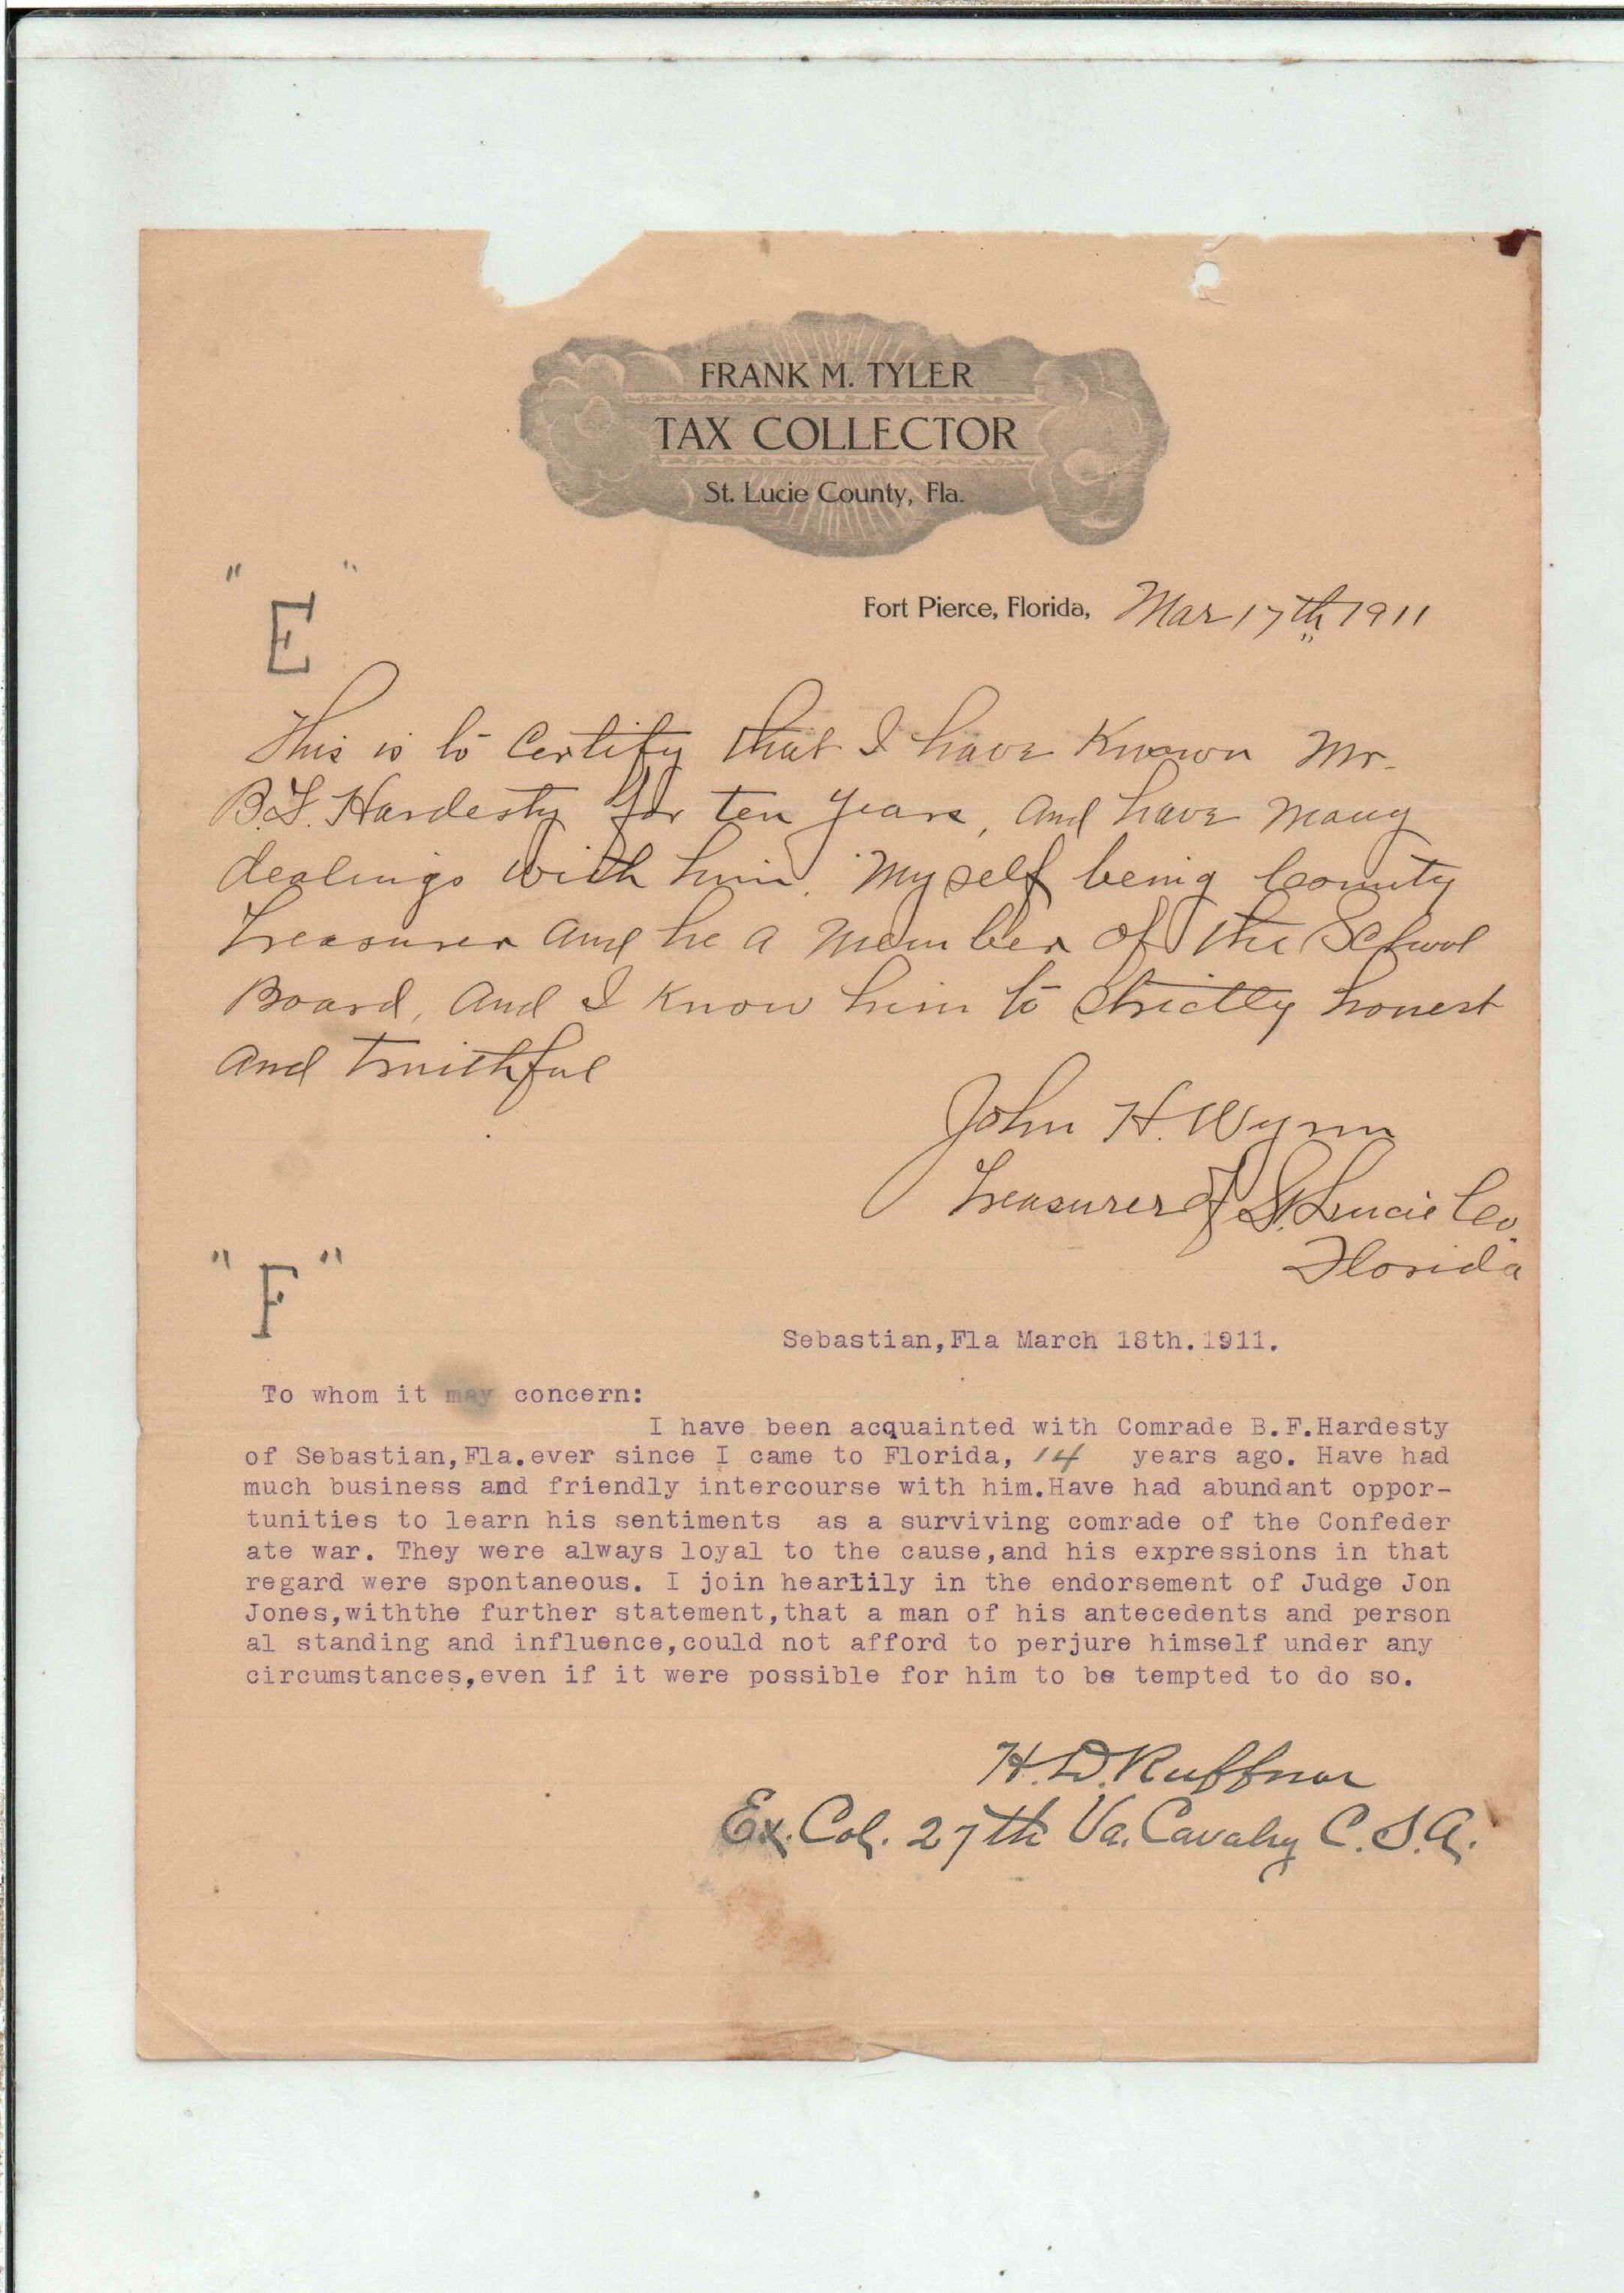 FRANK M. TYLER
TAX COLLECTOR
St. Lucie County, Fla.
"E"
Fort Pierce, Florida, Mar 17th 1911
This is to Certify that I have Known Mr.
B.F. Hardesty for ten years, and have many
dealings with him. Myself being County
Treasurer and he a member of the School
Board, and I know him to strictly honest
and truithful
John H. Wynn
Treasurer of St. Lucie Co.
Florida
"F"
Sebastian,Fla March 18th.1911.
To whom it may concern:
I have been acquainted with Comrade B.F.Hardesty
of Sebastian,Fla.ever since I came to Florida, 14 years ago. Have had
much business and friendly intercourse with him.Have had abundant oppor-
tunities to learn his sentiments as a surviving comrade of the Confeder
ate war. They were always loyal to the cause,and his expressions in that
regard were spontaneous. I join heartily in the endorsement of Judge Jon
Jones,withthe further statement,that a man of his antecedents and person
al standing and influence,could not afford to perjure himself under any
circumstances,even if it were possible for him to be tempted to do so.
H.D. Ruffner
Ex. Col. 27th Va. Cavalry C.S.A.